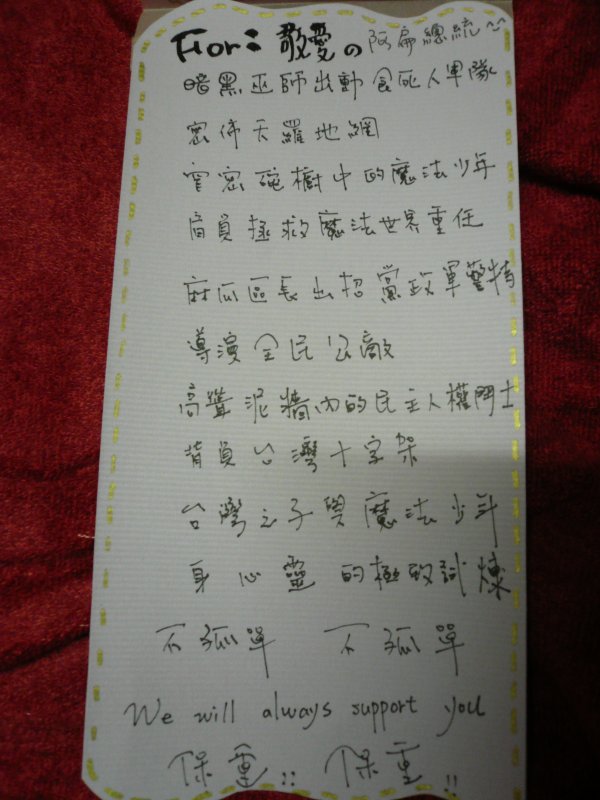 For: 敬愛の阿扁總統~~
暗黑巫師出動食死人軍隊
密佈天羅地網
窄密碗櫥中的魔法少年
肩負拯救魔法世界重任
麻瓜區長出招黨政軍警特
導演全民公敵
高聳泥牆內的民主人權鬥士
背負台灣十字架
台灣之子與魔法少年
身心靈的極致試煉
不孤單 不孤單
We will always support you
保重!! 保重!!